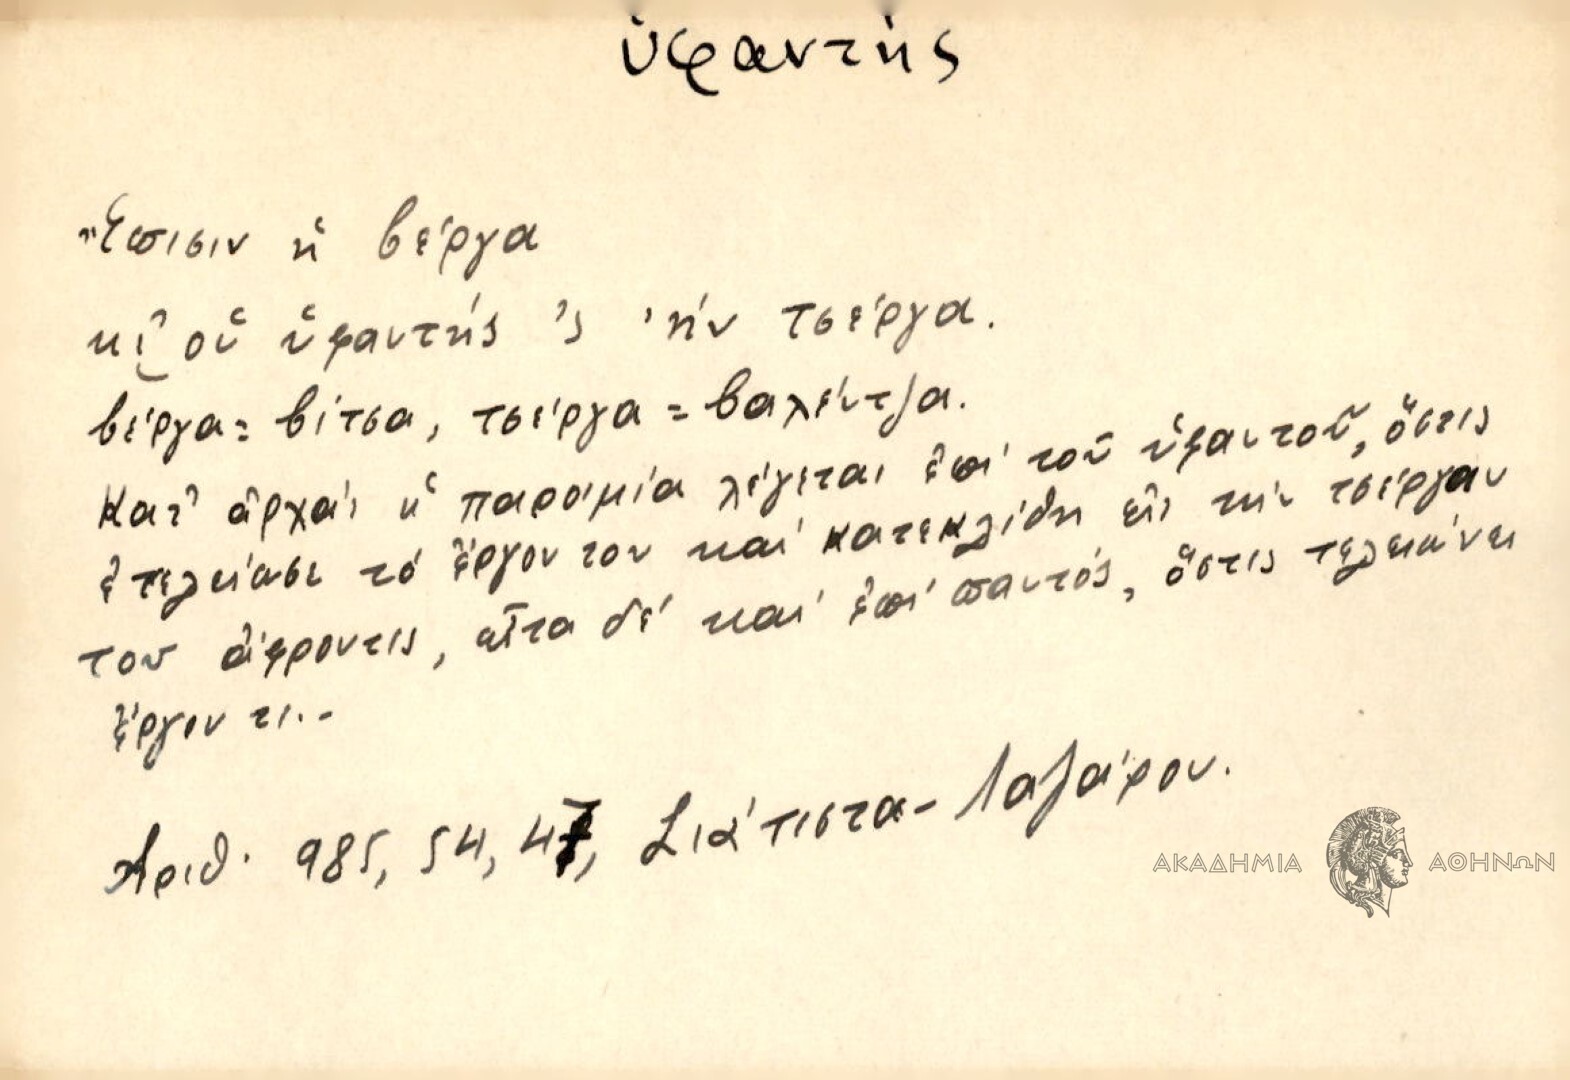 ὑφαντής
Ἔπισιν ἡ βέργα
κὶ οὑ ὑφαντής 'ς 'ήν τσέργα.
βέργα = βίτσα, τσέργα = βαλέντζα.
Κατ' ἀρχάς ἡ παροιμία λέγεται ἐπί τοῦ ὑφαντοῦ, ὅστις
ἐτελείωσε τό ἔργον του καί κατεκλίθη εἰς τήν τσέργαν
του ἄφροντις, εἶτα δέ καί ἐπί παντός, ὅστις τελειώνει
ἔργον τι.-
Ἀριθ. 985, 54, 47, Σιάτιστα - Λαζάρου.
ΑΚΑΔΗΜΙΑ ΑΘΗΝΩΝ